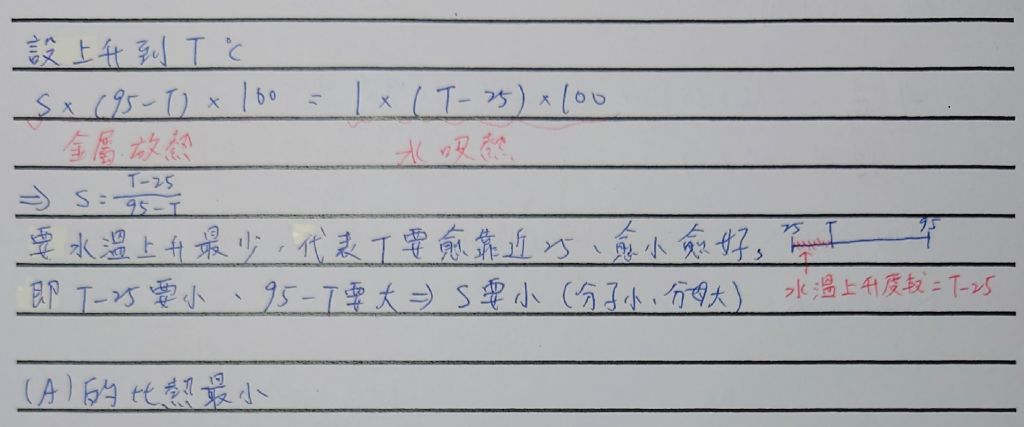 設上升到 T ℃
S × (95-T) × 100 = 1 × (T-25) × 100
金屬放熱 水吸熱
⇒ S = \frac{T-25}{95-T}
要水溫上升最少,代表 T 要愈靠近 25、愈小愈好。
25 T 95
即 T-25 要小、95-T 要大 ⇒ S 要小 (分子小、分母大)
水溫上升度數 = T-25
(A) 的比熱最小